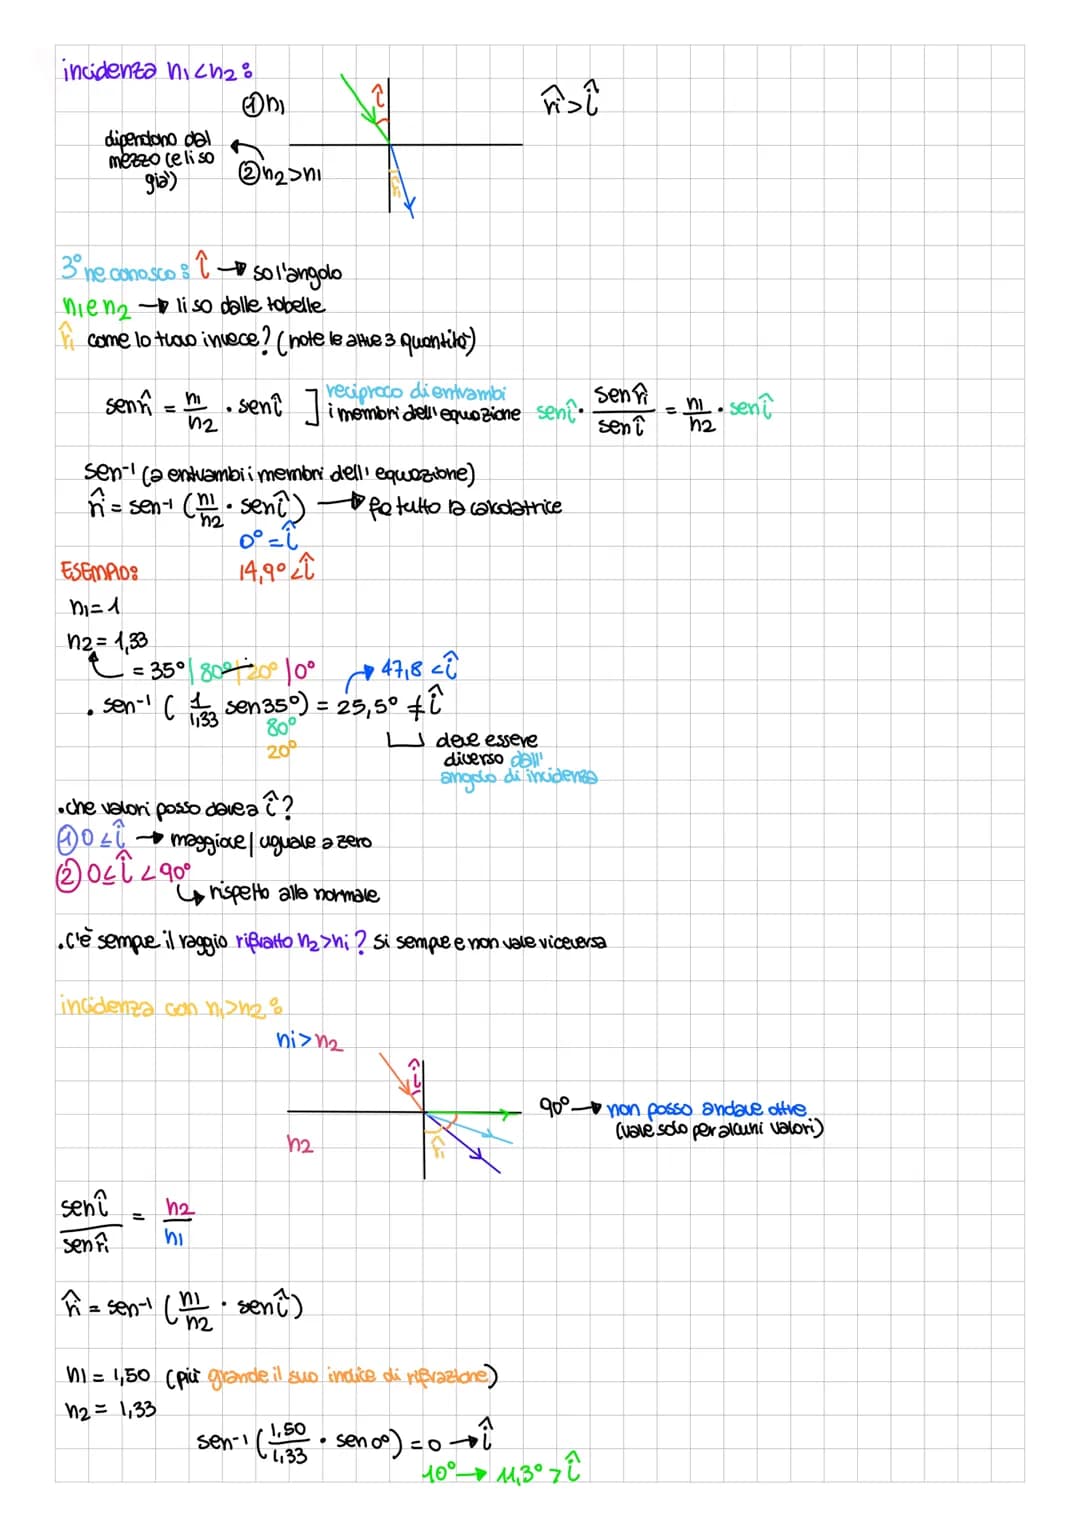 incidenza n1<n2:
①n1
î
r̂i>î
dipendono dal
mezzo (e li so
già)
②n2>n1
r̂i
3° ne conosco: î → so l'angolo
n1 e n2 → li so dalle tabelle
r̂i come lo trovo invece? (note le altre 3 quantità)
senr̂i = n1/n2 · senî ] reciproco di entrambi
i membri dell'equazione senî · senr̂i/senî = n1/n2 · senî
sen-1 (a entrambi i membri dell'equazione)
r̂i = sen-1 (n1/n2 · senî) → fa tutto la calcolatrice
0° = î
ESEMPIO: 14,9° < î
n1 = 1
n2 = 1,33
= 35° | 80° | 20° | 0° → 47,8 < î
. sen-1 (1/1,33 sen35°) = 25,5° ≠ î
80°
20°
deve essere
diverso dall'
angolo di incidenza
.che valori posso dare a î?
① 0 ≤ î → maggiore | uguale a zero
② 0 ≤ î < 90°
↳ rispetto alla normale
.C'è sempre il raggio rifratto n2>ni? Si sempre e non vale viceversa
incidenza con n1>n2:
ni>n2
î
90° → non posso andare oltre
(vale solo per alcuni valori)
n2
r̂i
senî/senr̂i = n2/n1
r̂i = sen-1 (n1/n2 · senî)
n1 = 1,50 (più grande il suo indice di rifrazione)
n2 = 1,33
sen-1 (1,50/1,33 · sen0°) = 0 → î
10° → 11,3° > î